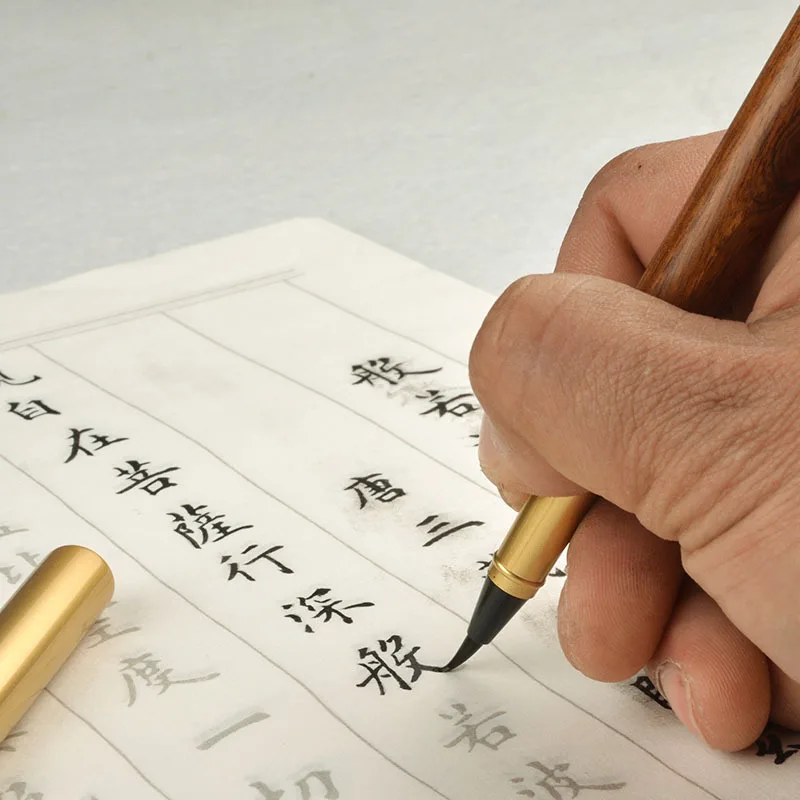 般若
唐三
自在菩薩行深般若波
度一切